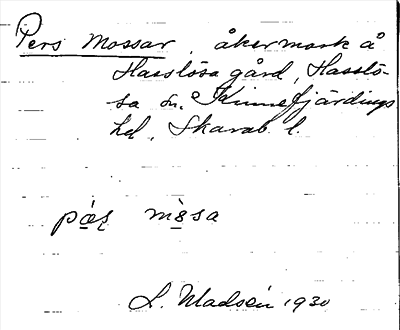 Pers Mossar, åkermark å
Hasslösa gård, Hasslö-
sa sn. Kinnefjärdings
hd, Skarab. l.
pæ̀ʂ mòsa
L. Madsén 1930